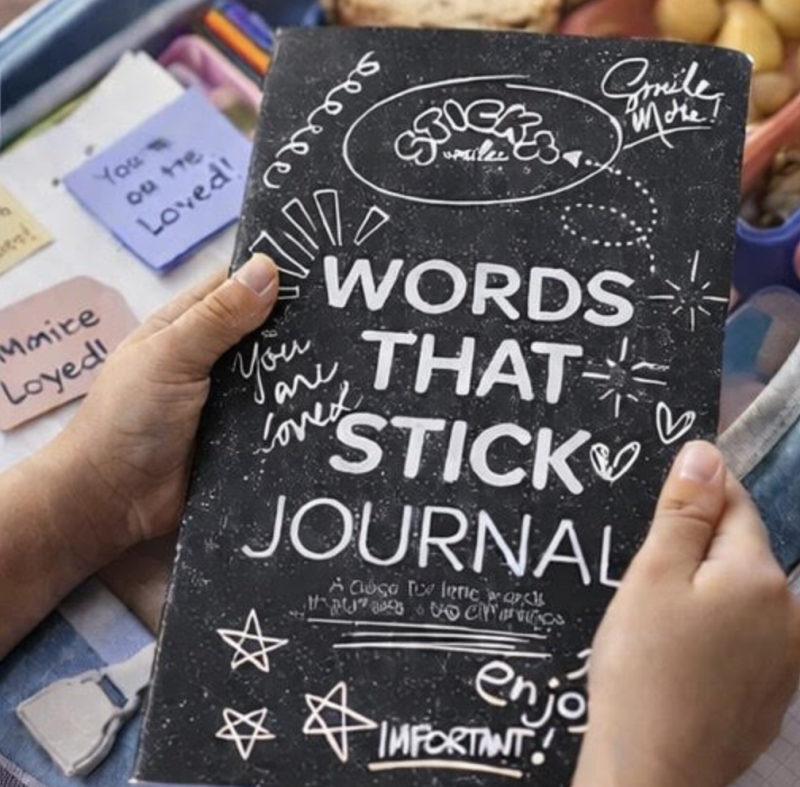 STICKS
smile
Smile
More!
WORDS
THAT
STICK
JOURNAL
You
are
loved
enjo
IMPORTANT!
You
ou tre
Loved!
Mnaire
Loyed!